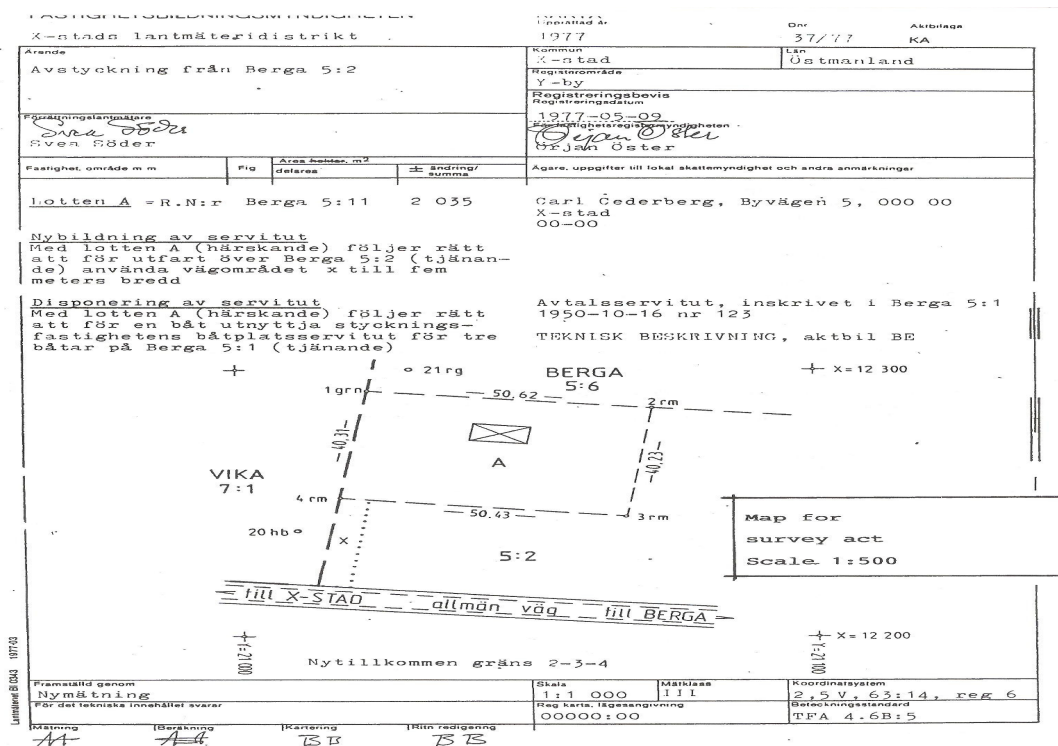 FASTIGHETSBILDNINGSMYNDIGHETEN
KARTA
X-stads lantmäteridistrikt
Upprättad år
1977
Dnr
37/77
Aktbilaga
KA
Ärende
Avstyckning från Berga 5:2
Kommun
X-stad
Län
Östmanland
Registerområde
Y-by
Registreringsbevis
Registreringsdatum
1977-05-09
Förrättningslantmätare
Sven Söder
Sven Söder
För fastighetsregistermyndigheten
Örjan Öster
Örjan Öster
Fastighet, område m m
Fig
Area hektar, m²
delarea
± ändring/
summa
Ägare, uppgifter till lokal skattemyndighet och andra anmärkningar
Lotten A =R.N:r Berga 5:11 2 035
Carl Cederberg, Byvägen 5, 000 00
X-stad
00-00
Nybildning av servitut
Med lotten A (härskande) följer rätt
att för utfart över Berga 5:2 (tjänan-
de) använda vägområdet x till fem
meters bredd
Disponering av servitut
Med lotten A (härskande) följer rätt
att för en båt utnyttja stycknings-
fastighetens båtplatsservitut för tre
båtar på Berga 5:1 (tjänande)
Avtalsservitut, inskrivet i Berga 5:1
1950-10-16 nr 123
TEKNISK BESKRIVNING, aktbil BE
21 rg
BERGA
5:6
X=12 300
1 grn
50,62
2 rm
40,31
A
40,23
VIKA
7:1
4 rm
50.43
3 rm
20 hb
x
5:2
Map for
survey act
Scale 1:500
till X-STAD allmän väg till BERGA
Y=21 000
Y=21 100
X=12 200
Nytillkommen gräns 2-3-4
Lantmäteriet Bl 0343 1977-03
Framställd genom
Nymätning
Skala
1:1 000
Mätklass
III
Koordinatsystem
2,5 V, 63:14, reg 6
För det tekniska innehållet svarar
Reg karta, lägesangivning
00000:00
Beteckningsstandard
TFA 4.6B:5
Mätning
Beräkning
Kartering
BB
Ritn redigering
BB